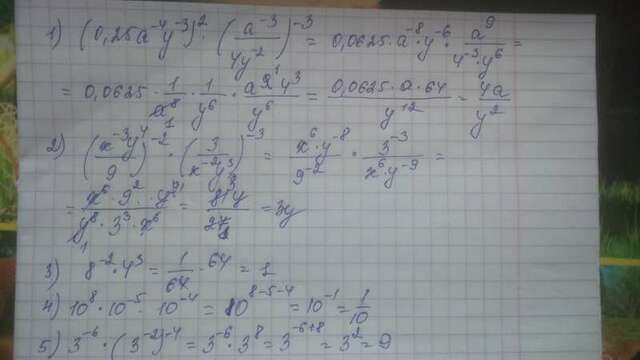 1) (0,25a⁻⁴y⁻³)² · (a⁻³/4y⁻²)⁻³ = 0,0625 · a⁻⁸ · y⁻⁶ · a⁹/4⁻³ · y⁶ =
= 0,0625 · 1/a⁸ · 1/y⁶ · a⁹¹ 4³/y⁶ = 0,0625 · a · 64/y¹² = 4a/y²
2) (x⁻³y⁴/9)⁻² · (3/x⁻²y³)⁻³ = x⁶ · y⁻⁸/9⁻² · 3⁻³/x⁶ · y⁻⁹ =
= x⁶ · 9² · y⁹/y⁸ · 3³ · x⁶ = 81³y/27₁ = 3y
3) 8⁻² · 4³ = 1/64 · 64 = 1
4) 10⁸ · 10⁻⁵ · 10⁻⁴ = 10⁸⁻⁵⁻⁴ = 10⁻¹ = 1/10
5) 3⁻⁶ · (3⁻²)⁻⁴ = 3⁻⁶ · 3⁸ = 3⁻⁶⁺⁸ = 3² = 9